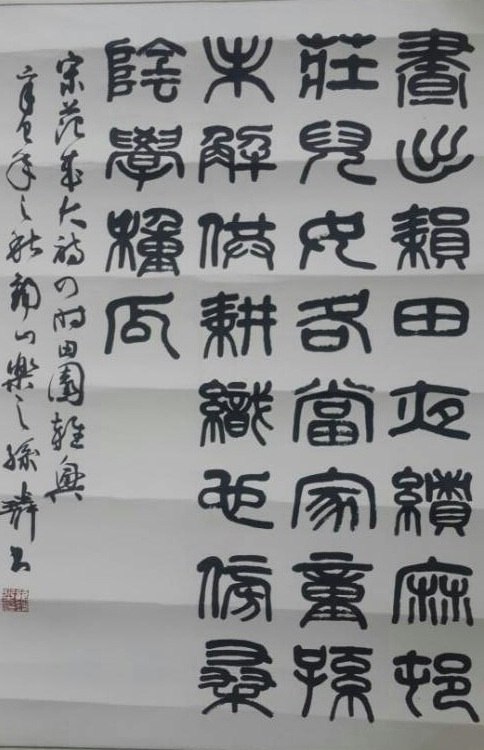 晝出䎩田夜績麻邨
莊兒女各當家童孫
未解供耕織也傍桑
陰學穜瓜
宋范成大詩四時田園雜興
年之秋 山樂之孫 書